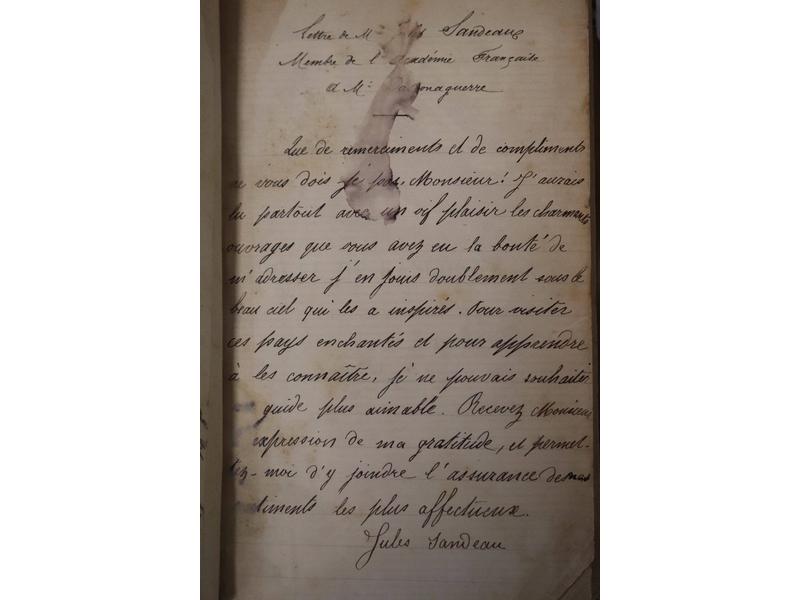 Lettre de M Jules Sandeau
Membre de l'Académie Française
à Mr
Que de remerciments et de compliments
ne vous dois-je pas, Monsieur! J'aurais
lu partout avec un vif plaisir les charmants
ouvrages que vous avez eu la bonté de
m'adresser j'en jouis doublement sous le
beau ciel qui les a inspirés. Pour visiter
ces pays enchantés et pour apprendre
à les connaître, je ne pouvais souhaiter
guide plus aimable. Recevez Monsieur
expression de ma gratitude, et permet-
tez-moi d'y joindre l'assurance de mes
timents les plus affectueux.
Jules Sandeau